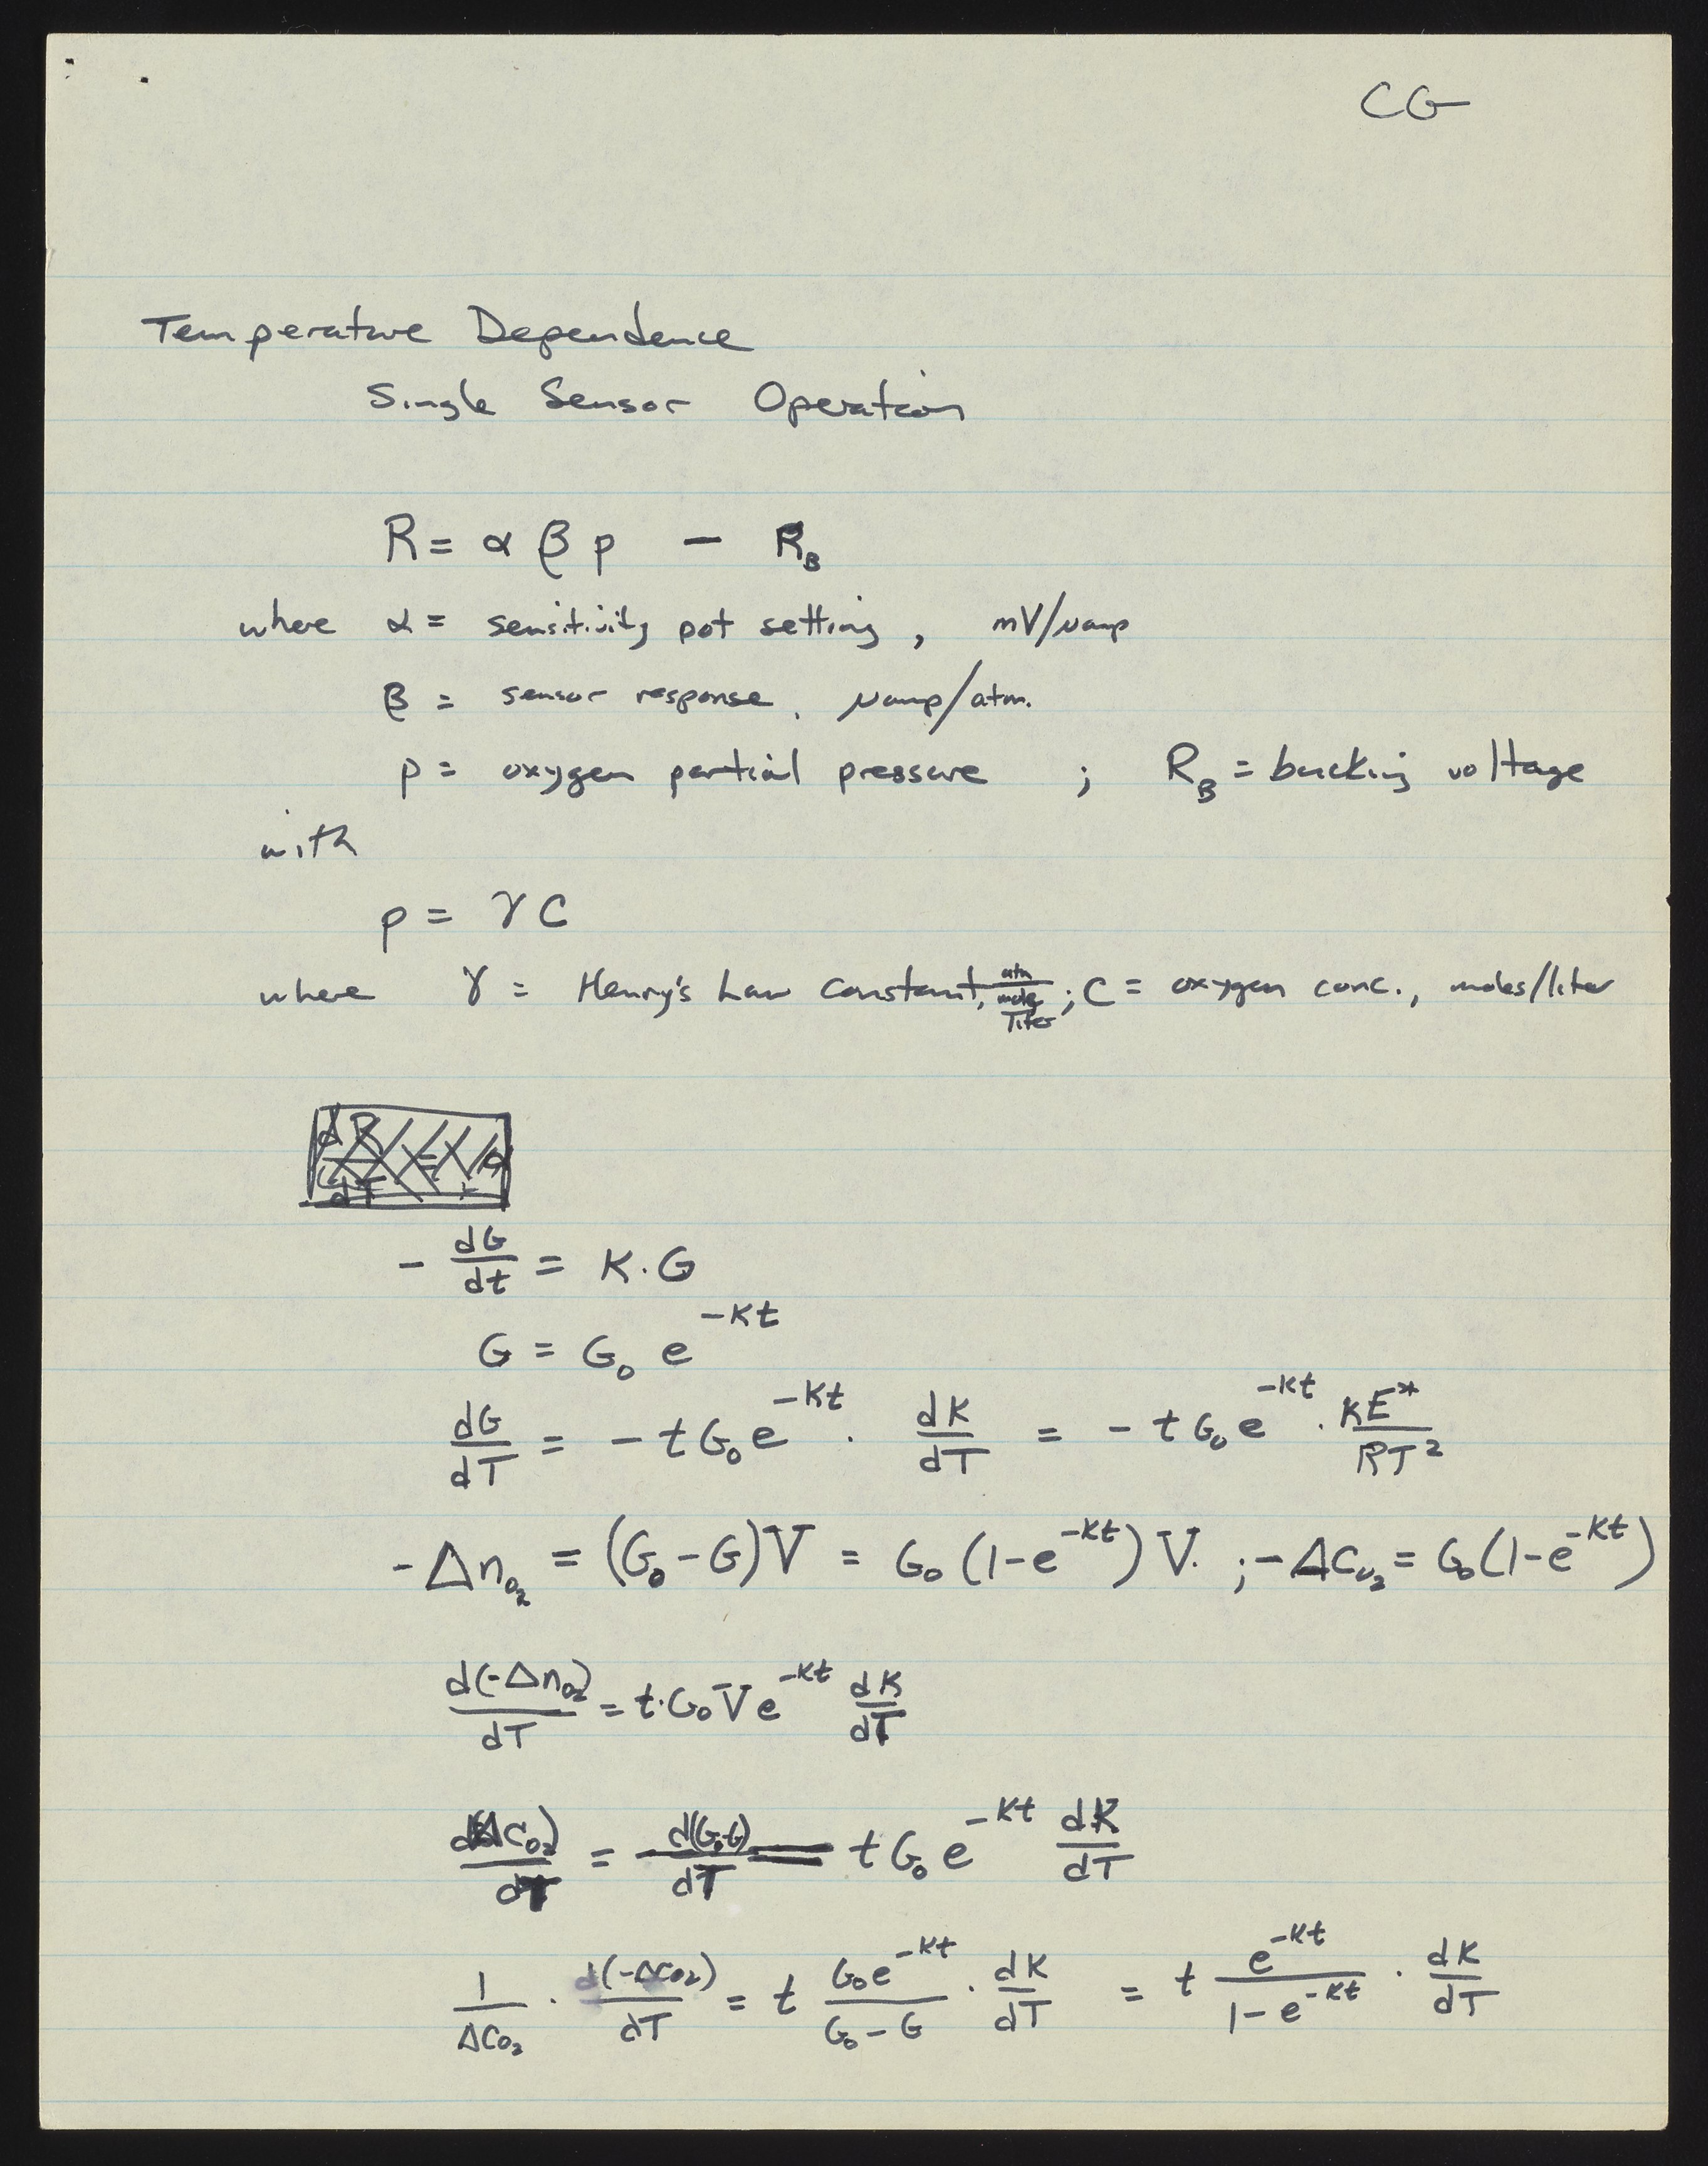 CG
Temperature Dependence
Single Sensor Operation
R = α β p − R_B
where α = sensitivity pot setting, mV/μamp
β = sensor response, μamp/atm.
p = oxygen partial pressure ; R_B = bucking voltage
with
p = γ C
where γ = Henry's Law constant, atm/(mole/liter) ; C = oxygen conc., moles/liter
− dG/dt = K · G
G = G₀ e^{−Kt}
dG/dT = − t G₀ e^{−Kt} · dK/dT = − t G₀ e^{−Kt} · KE*/RT²
− Δn_{O₂} = (G₀ − G) V = G₀ (1 − e^{−Kt}) V. ; − ΔC_{O₂} = G₀ (1 − e^{−Kt})
d(−Δn_{O₂})/dT = t · G₀ V e^{−Kt} dK/dT
d(ΔC_{O₂})/dT = d(G₀−G)/dT = t G₀ e^{−Kt} dK/dT
1/ΔC_{O₂} · d(−ΔC_{O₂})/dT = t G₀e^{−Kt}/(G₀ − G) · dK/dT = t e^{−Kt}/(1 − e^{−Kt}) · dK/dT